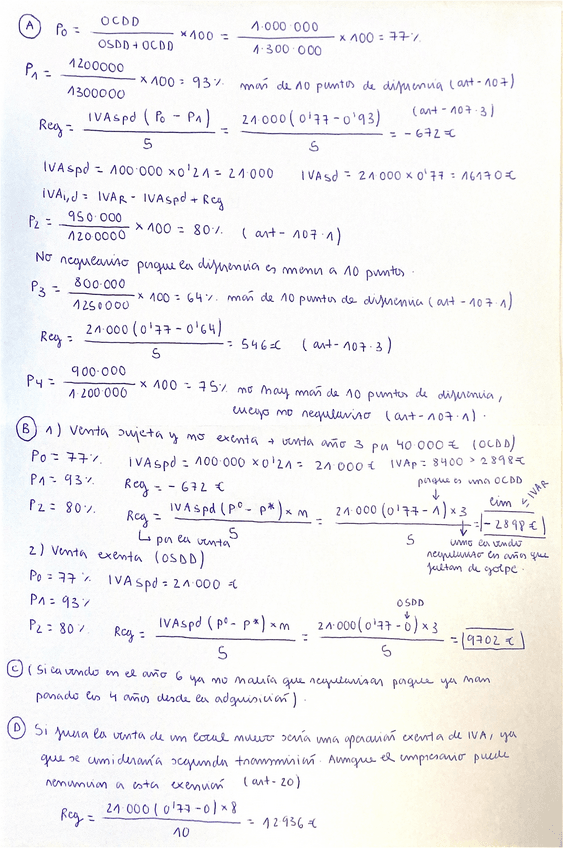 A P0 = OCDD / OSDD + OCDD × 100 = 1.000.000 / 1.300.000 × 100 = 77%
P1 = 1200000 / 1300000 × 100 = 93% más de 10 puntos de diferencia (art-107)
Reg = IVAspd (P0 - P1) / 5 = 21.000 (0'77 - 0'93) / 5 = -672€ (art-107.3)
IVAspd = 100.000 × 0'21 = 21.000 IVAsd = 21.000 × 0'77 = 16170€
IVAi,d = IVAR - IVAspd + Reg
P2 = 950.000 / 1200000 × 100 = 80% (art-107.1)
No regularizo porque la diferencia es menor a 10 puntos.
P3 = 800.000 / 1250000 × 100 = 64% más de 10 puntos de diferencia (art-107.1)
Reg = 21.000 (0'77 - 0'64) / 5 = 546€ (art-107.3)
P4 = 900.000 / 1.200.000 × 100 = 75% no hay más de 10 puntos de diferencia,
luego no regularizo (art-107.1).
B 1) Venta sujeta y no exenta + venta año 3 por 40.000€ (OCDD)
P0 = 77% IVAspd = 100.000 × 0'21 = 21.000€ IVAR = 8400 > 2898€
P1 = 93% Reg = -672€
porque es una OCDD
P2 = 80% Reg = IVAspd (P0 - P*) × n / 5 = 21.000 (0'77 - 1) × 3 / 5 = -2898€
lim IVAR
por la venta
como la vendo
regularizo los años que
faltan de golpe.
2) Venta exenta (OSDD)
P0 = 77% IVAspd = 21.000€
P1 = 93%
OSDD
P2 = 80% Reg = IVAspd (P0 - P*) × n / 5 = 21.000 (0'77 - 0) × 3 / 5 = 9702€
C (Si la vendo en el año 6 ya no habría que regularizar porque ya han
pasado los 4 años desde la adquisición).
D Si fuera la venta de un local nuevo sería una operación exenta de IVA, ya
que se consideraría segunda transmisión. Aunque el empresario puede
renunciar a esta exención (art-20)
Reg = 21.000 (0'77 - 0) × 8 / 10 = 12936€